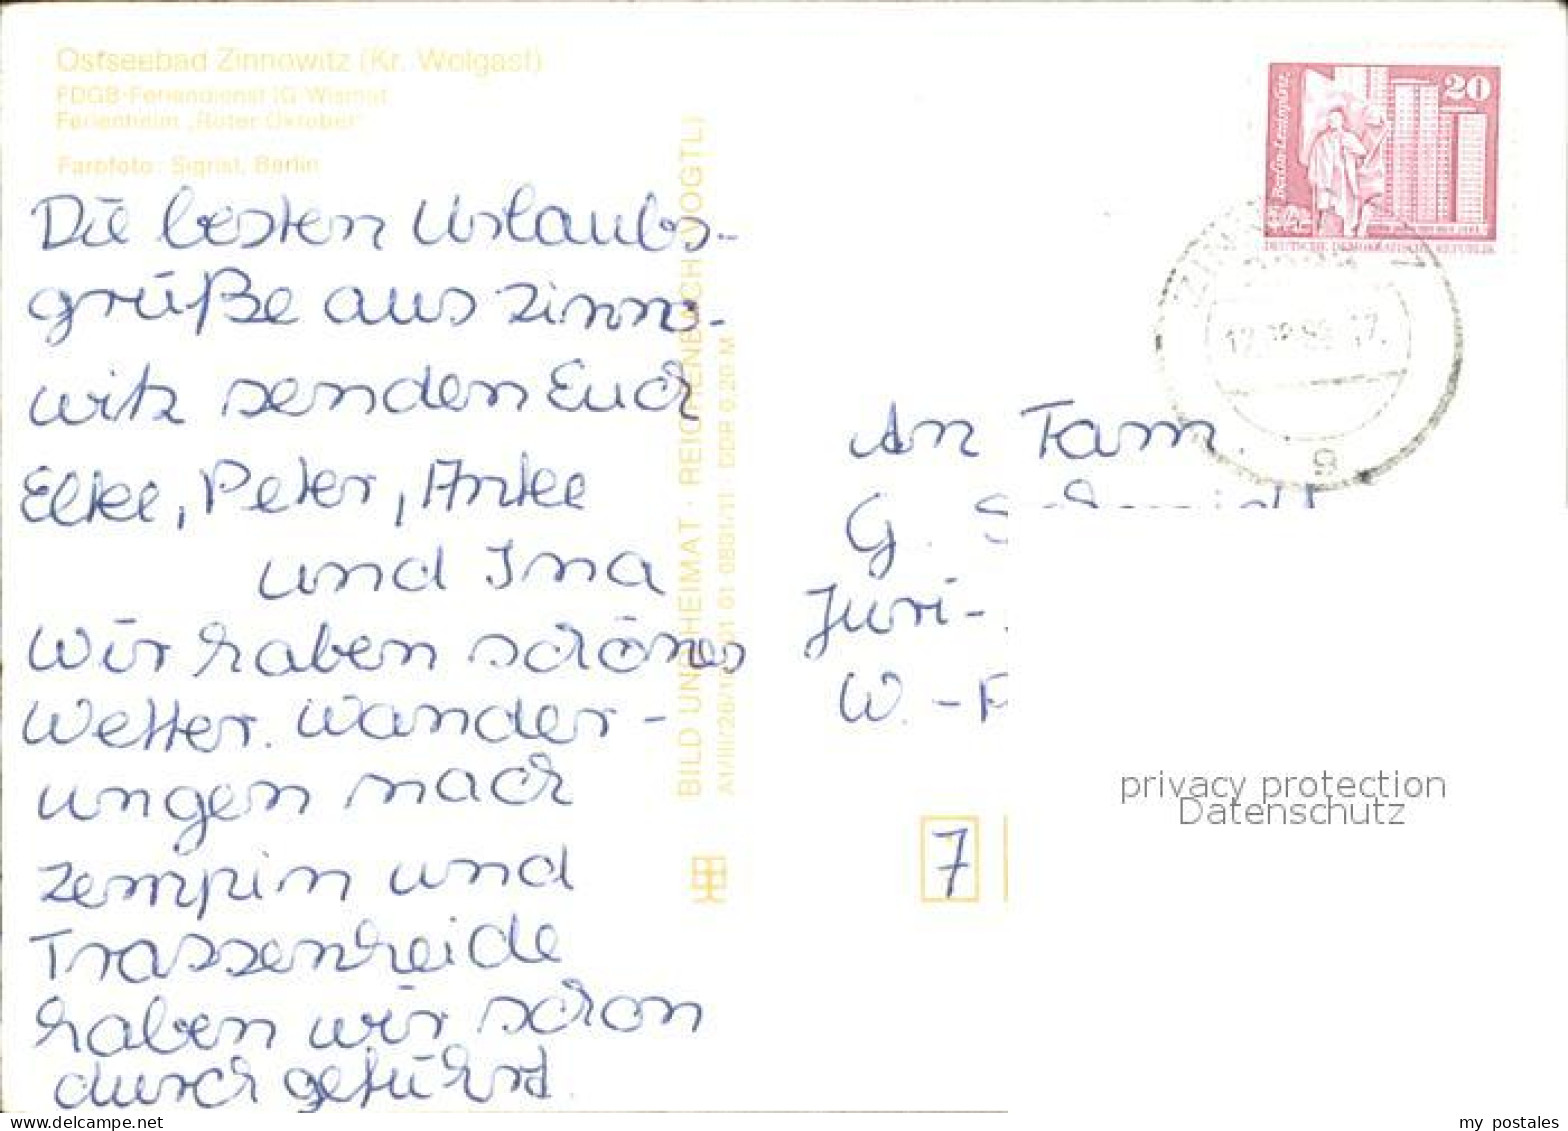 Ostseebad Zinnowitz (Kr. Wolgast)
FDGB-Feriendienst IG Wismut
Ferienheim „Roter Oktober"
Farbfoto: Sigrist, Berlin
Die besten Urlaubs-
grüße aus Zinno-
witz senden Euch
Elke, Peter, Antke
und Ina
Wir haben schönes
Wetter. Wander-
ungen nach
Zempin und
Trassenheide
haben wir schon
durchgeführt.
BILD UND HEIMAT · REICHENBACH (VOGTL)
DDR 0,20 M
20
Berlin-Leninplatz
DDR
DEUTSCHE DEMOKRATISCHE REPUBLIK
g
An Fam.
G.
Juri-
W.-
7
privacy protection
Datenschutz
my postales